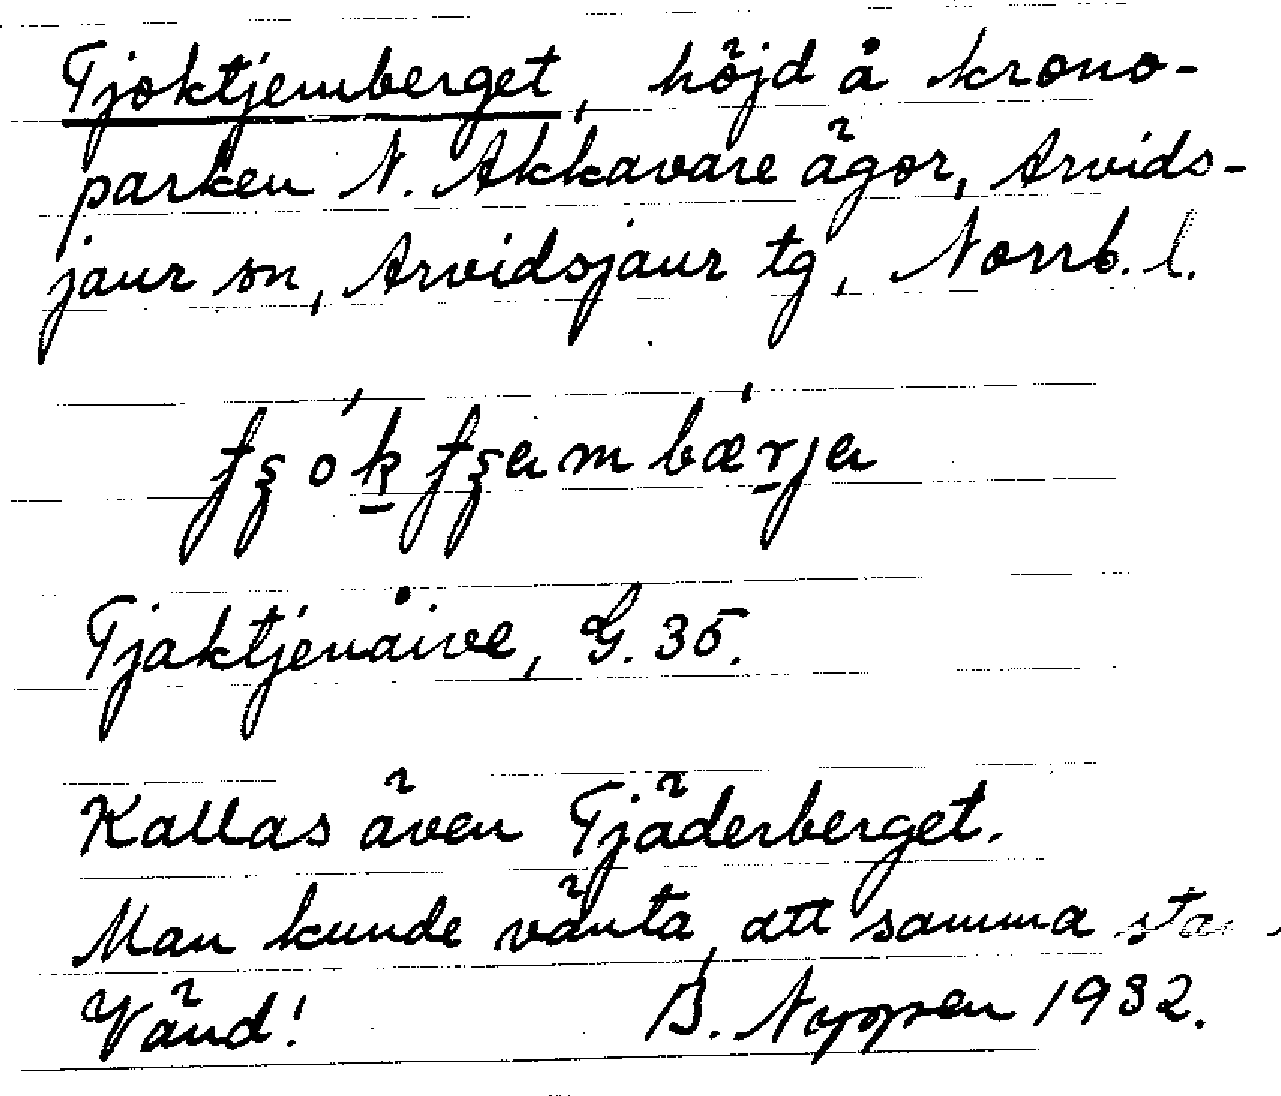 Tjoktjemberget, höjd å krono-
parken N. Akkavare ägor, Arvids-
jaur sn, Arvidsjaur tg, Norrb. l.
Tjaktjenåive, G. 35.
Kallas även Tjäderberget.
Man kunde vänta, att samma
Vänd! B. Noppen 1932.